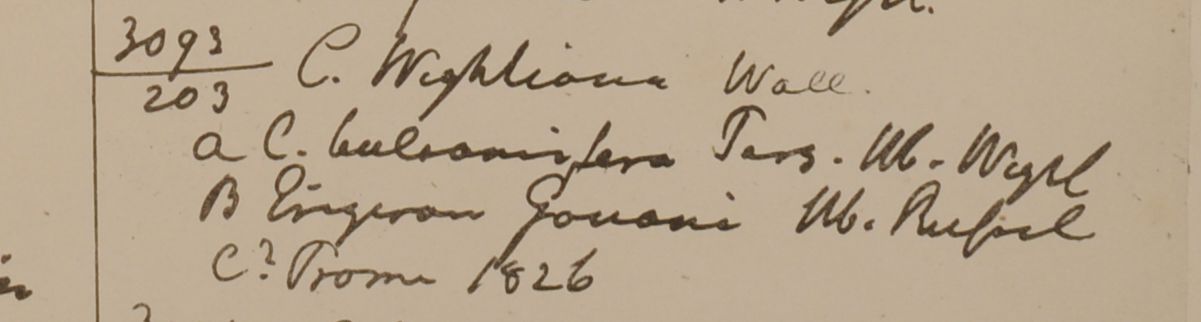 3093
203
C. Wightiana Wall.
a C. balsamifera Hb. Wight
B Erigeron Gouani Hb. Russel
C? Prome 1826